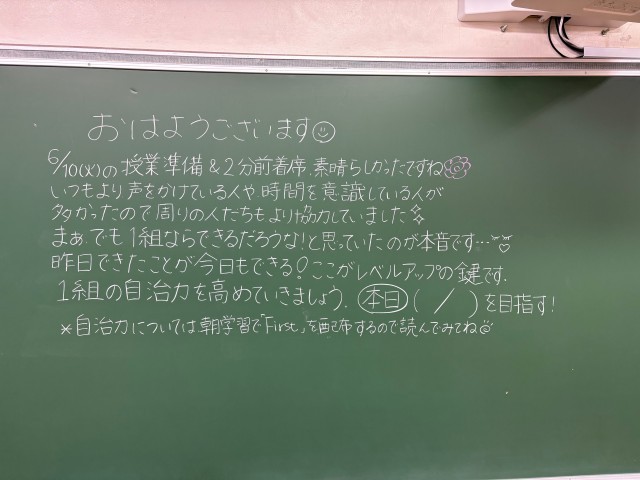 おはようございます☺
6/10(火)の授業準備&2分前着席、素晴らしかったですね
いつもより声をかけている人や、時間を意識している人が
多かったので周りの人たちもより協力していました
まぁ、でも1組ならできるだろうな!と思っていたのが本音です…
昨日できたことが今日もできる!ここがレベルアップの鍵です。
1組の自治力を高めていきましょう。本日( / )を目指す!
*自治力については朝学習で「First」を配布するので読んでみてね